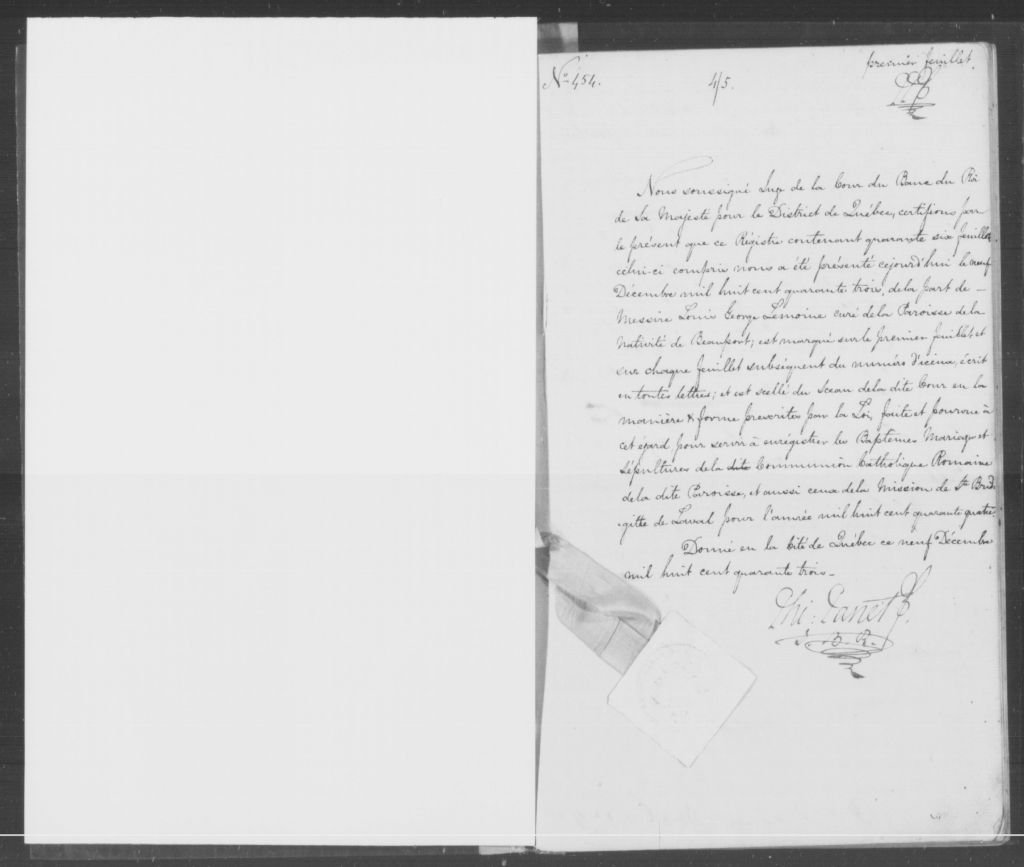 premier feuillet.
No. 454.
4/5.
Nous soussigné Juge de la Cour du Banc du Roi
de Sa Majesté pour le District de Québec, certifions par
le présent que ce Régistre contenant quarante six feuillets
celui-ci compris nous a été présenté cejourd'hui le neuf
Décembre mil huit cent quarante trois, de la part de —
Messire Louis George Lemoine curé de la Paroisse de la
Nativité de Beauport; est marqué sur le premier feuillet et
sur chaque feuillet subséquent du numéro d'icena, écrit
en toutes lettres; et est scellé du Sceau de la dite Cour en la
manière & forme prescrites par la Loi, faite et pourvue à
cet égard pour servir à enrégistrer les Baptêmes Mariages et
Sépultures de la dite Communion Catholique Romaine
de la dite Paroisse, et aussi ceux de la Mission de Ste Brid-
gitte de Laval pour l'année mil huit cent quarante quatre.
Donné en la Cité de Québec ce neuf Décembre
mil huit cent quarante trois —
Phi: Panet
J. B. R.